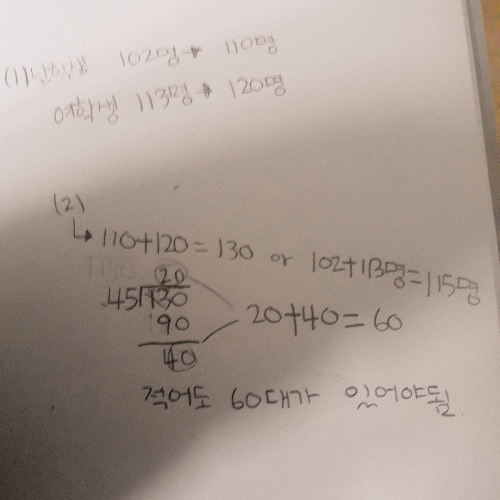 (1) 남학생 102명 → 110명
여학생 113명 → 120명
(2)
↳ 110+120=130 or 102+113명=115명
20
45)130
90
40
20+40=60
적어도 60대가 있어야됨.